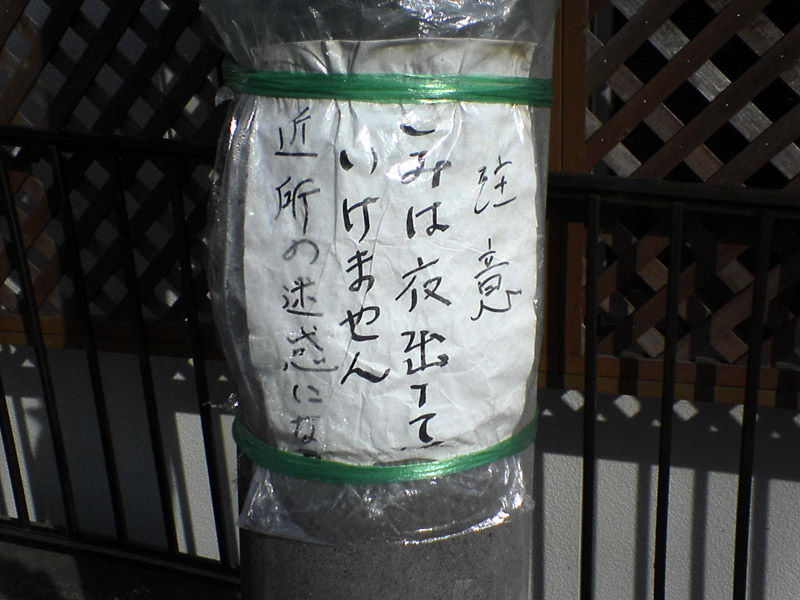 注意
ごみは夜出して
いけません
近所の迷惑にな